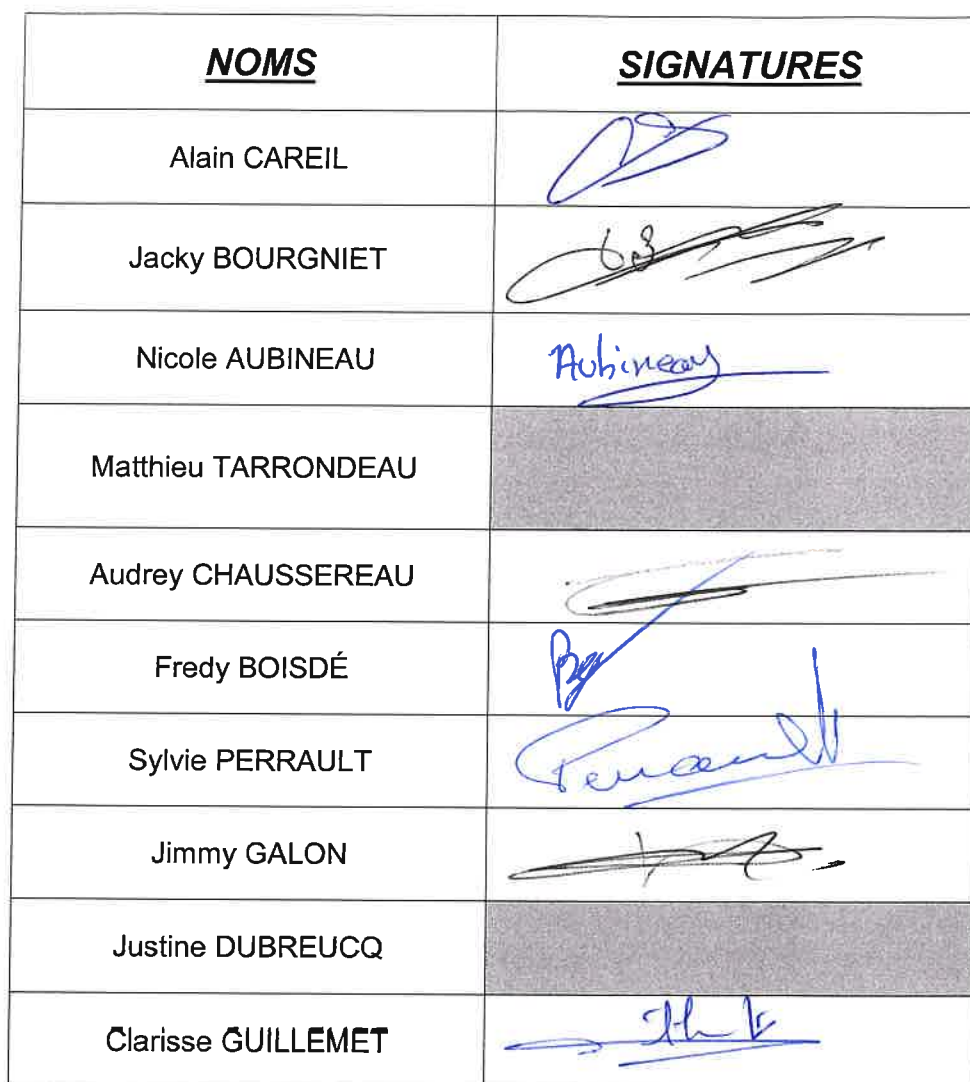 NOMS SIGNATURES
Alain CAREIL
Jacky BOURGNIET
Nicole AUBINEAU Aubineau
Matthieu TARRONDEAU
Audrey CHAUSSEREAU
Fredy BOISDÉ
Sylvie PERRAULT Perrault
Jimmy GALON
Justine DUBREUCQ
Clarisse GUILLEMET